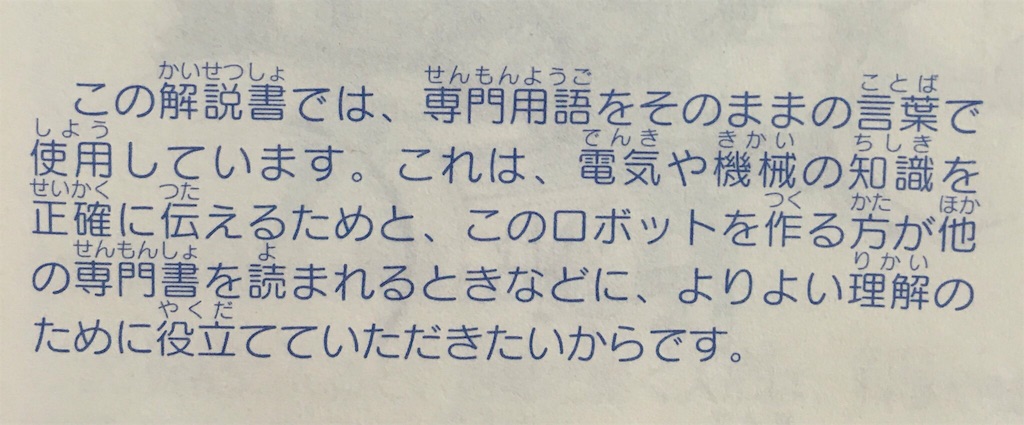 かいせつしょ せんもんようご ことば
この解説書では、専門用語をそのままの言葉で
しよう でんき きかい ちしき
使用しています。これは、電気や機械の知識を
せいかく つた つく かた ほか
正確に伝えるためと、このロボットを作る方が他
せんもんしょ よ りかい
の専門書を読まれるときなどに、よりよい理解の
やくだ
ために役立てていただきたいからです。